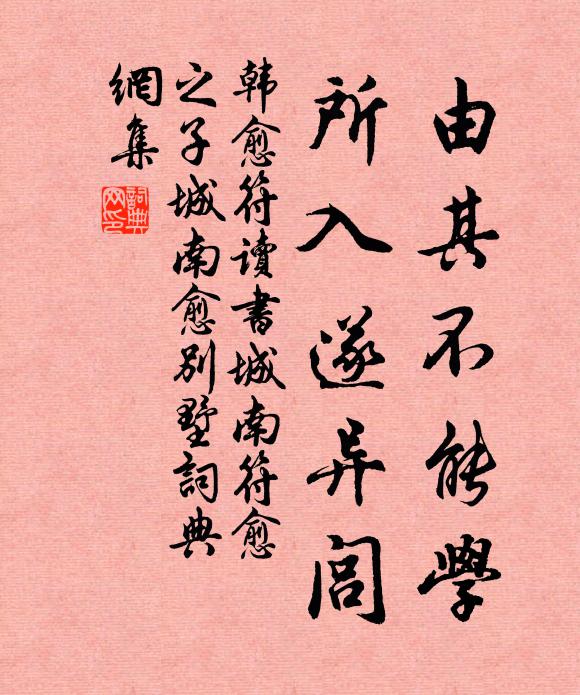 由其不能學
所入遂异閭
韩愈符讀書城南符愈
之子城南愈別墅詞典
網集
詞典
网印